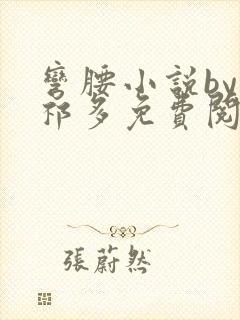 彎腰小說by
祁多免費閱
張蔚然